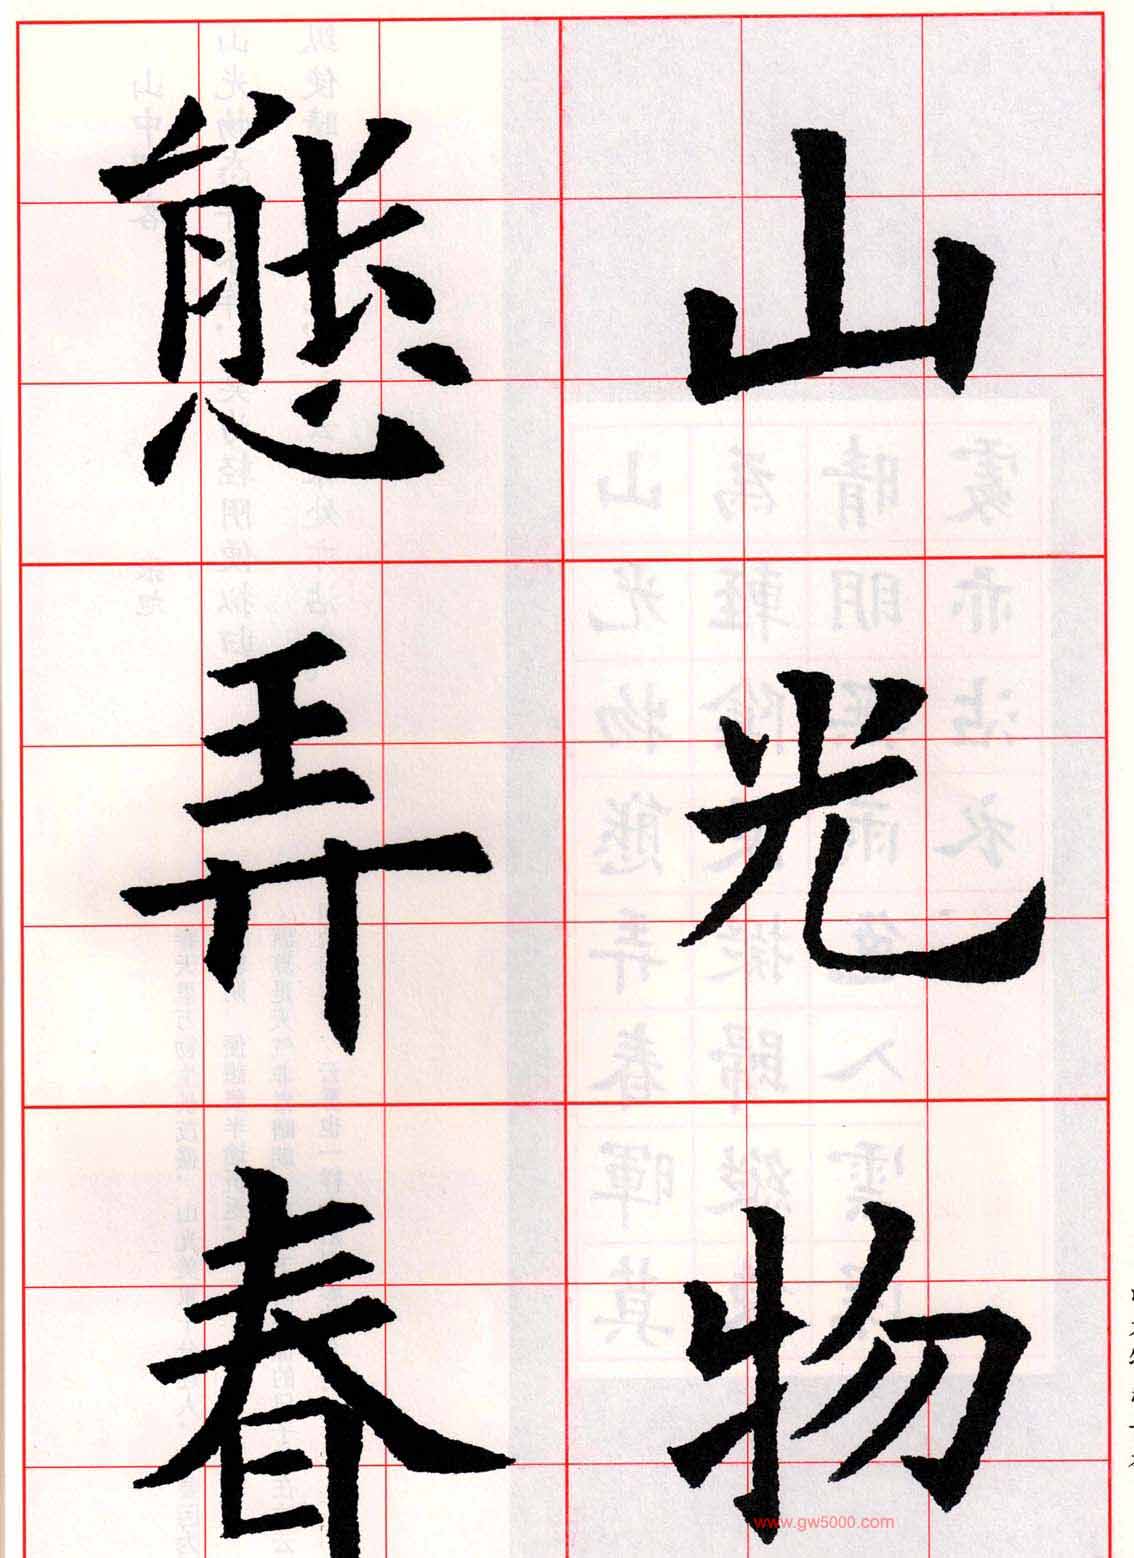 山光物
態弄春
www.gw5000.com